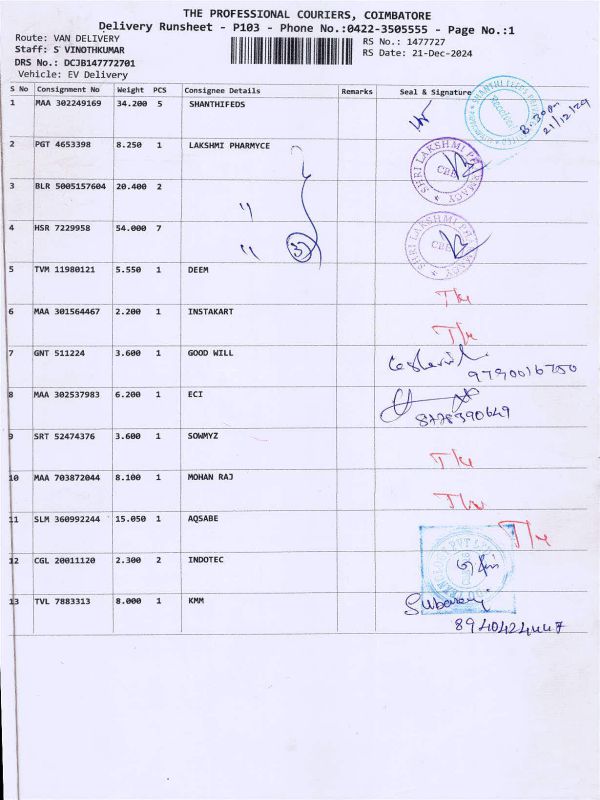 THE PROFESSIONAL COURIERS, COIMBATORE
Delivery Runsheet - P103 - Phone No.:0422-3505555 - Page No.:1
Route: VAN DELIVERY
Staff: S VINOTHKUMAR
DRS No.: DCJB147772701
Vehicle: EV Delivery
RS No.: 1477727
RS Date: 21-Dec-2024
S No Consignment No Weight PCS Consignee Details Remarks Seal & Signature
1 MAA 302249169 34.200 5 SHANTHIFEDS
8.30pm
21/12/24
2 PGT 4653398 8.250 1 LAKSHMI PHARMYCE
SHRI LAKSHMI PHARMACY
CBE
3 BLR 5005157604 20.400 2
"
4 HSR 7229958 54.000 7
" 3
SHRI LAKSHMI PHARMACY
CBE
5 TVM 11980121 5.550 1 DEEM
6 MAA 301564467 2.200 1 INSTAKART
7 GNT 511224 3.600 1 GOOD WILL
9790016750
8 MAA 302537983 6.200 1 ECI
8778390649
9 SRT 52474376 3.600 1 SOWMYZ
10 MAA 703872044 8.100 1 MOHAN RAJ
11 SLM 360992244 15.050 1 AQSABE
12 CGL 20011120 2.300 2 INDOTEC
13 TVL 7883313 8.000 1 KMM
8940424447